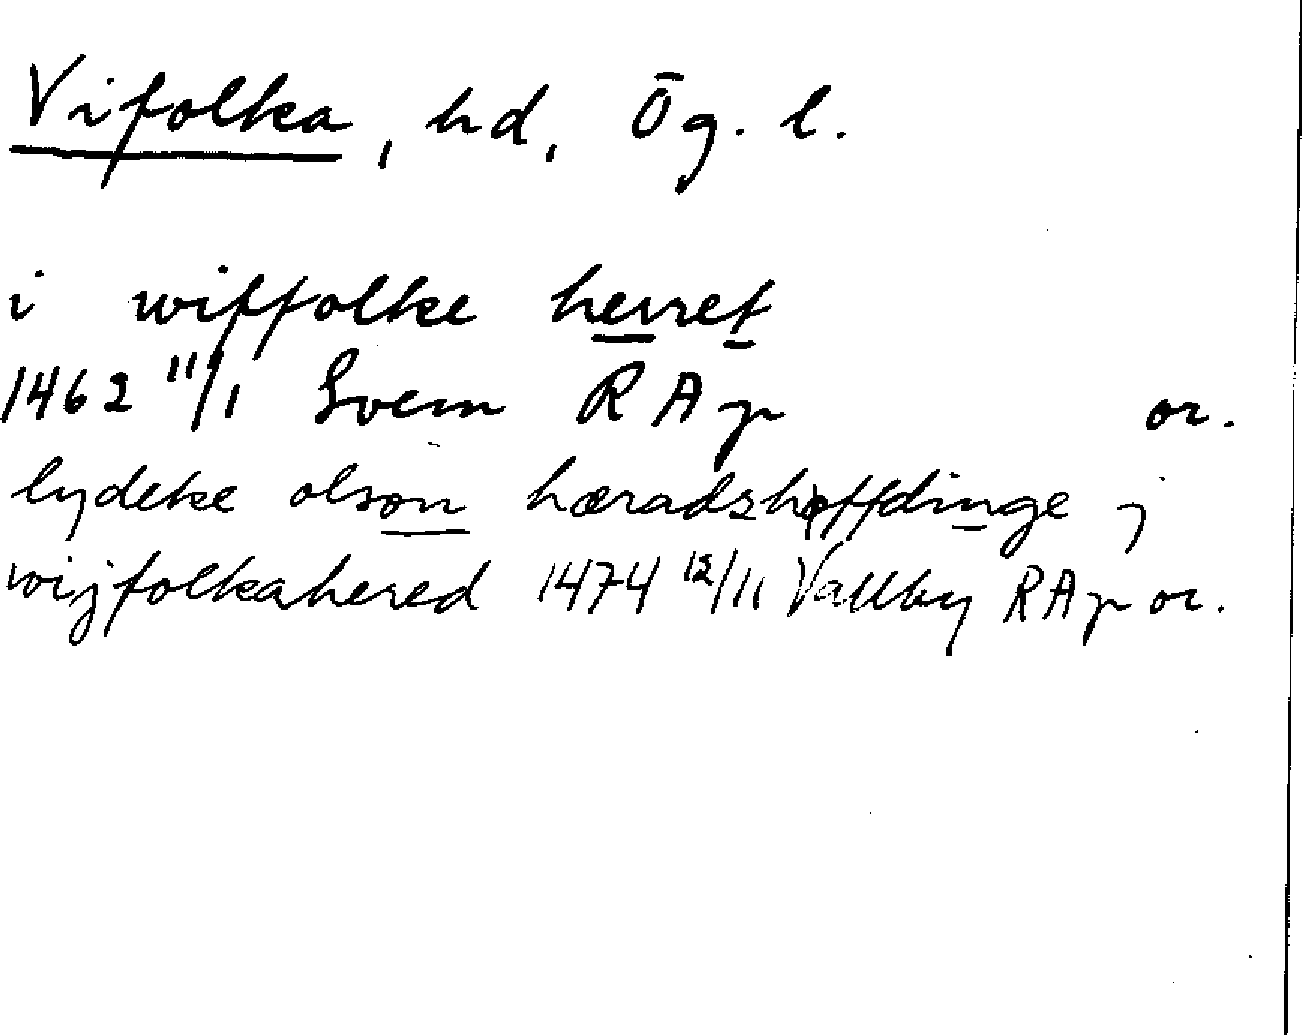 Vifolka, hd, Ög. l.
i wiffolke herret
1462 11/1 Svem RAp or.
lydeke olson hæradzhøffdinge j
wijfolkahered 1474 12/11 Vallby RAp or.